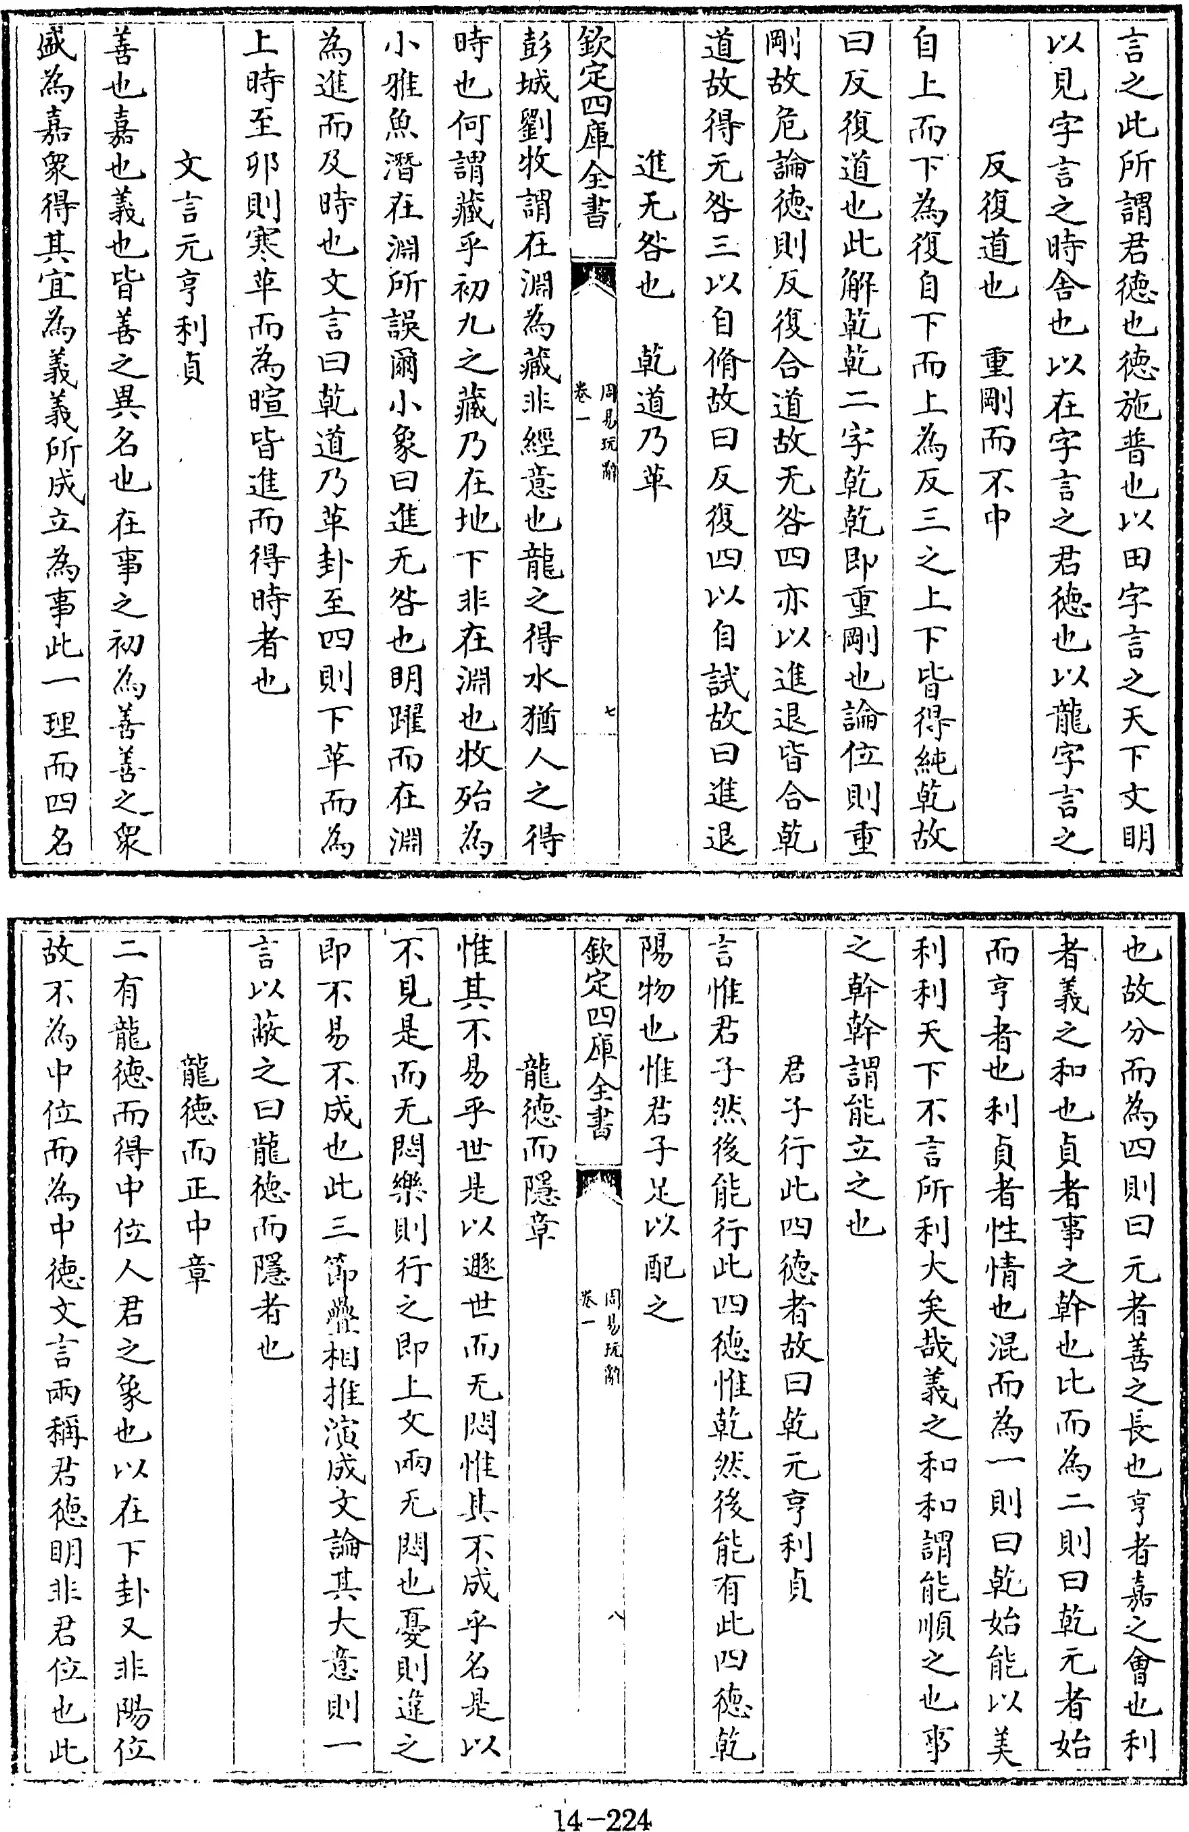 言之此所謂君德也德施普也以田字言之天下文明
以見字言之時舍也以在字言之君德也以龍字言之
反復道也　重剛而不中
自上而下為復自下而上為反三之上下皆得純乾故
曰反復道也此解乾乾二字乾乾即重剛也論位則重
剛故危論德則反復合道故无咎四亦以進退皆合乾
道故得无咎三以自脩故曰反復四以自試故曰進退
進无咎也　乾道乃革
欽定四庫全書　周易玩辭卷一　七
彭城劉牧謂在淵為藏非經意也龍之得水猶人之得
時也何謂藏乎初九之藏乃在地下非在淵也牧殆為
小雅魚潛在淵所誤爾小象曰進无咎也明躍而在淵
為進而及時也文言曰乾道乃革卦至四則下革而為
上時至卯則寒革而為暄皆進而得時者也
文言元亨利貞
善也嘉也義也皆善之異名也在事之初為善善之衆
盛為嘉衆得其宜為義義所成立為事此一理而四名
也故分而為四則曰元者善之長也亨者嘉之會也利
者義之和也貞者事之幹也比而為二則曰乾元者始
而亨者也利貞者性情也混而為一則曰乾始能以美
利利天下不言所利大矣哉義之和和謂能順之也事
之幹幹謂能立之也
君子行此四德者故曰乾元亨利貞
言惟君子然後能行此四德惟乾然後能有此四德乾
陽物也惟君子足以配之
欽定四庫全書　周易玩辭卷一　八
龍德而隱章
惟其不易乎世是以遯世而无悶惟其不成乎名是以
不見是而无悶樂則行之即上文兩无悶也憂則違之
即不易不成也此三節疊相推演成文論其大意則一
言以蔽之曰龍德而隱者也
龍德而正中章
二有龍德而得中位人君之象也以在下卦又非陽位
故不為中位而為中德文言兩稱君德明非君位也此
14-224